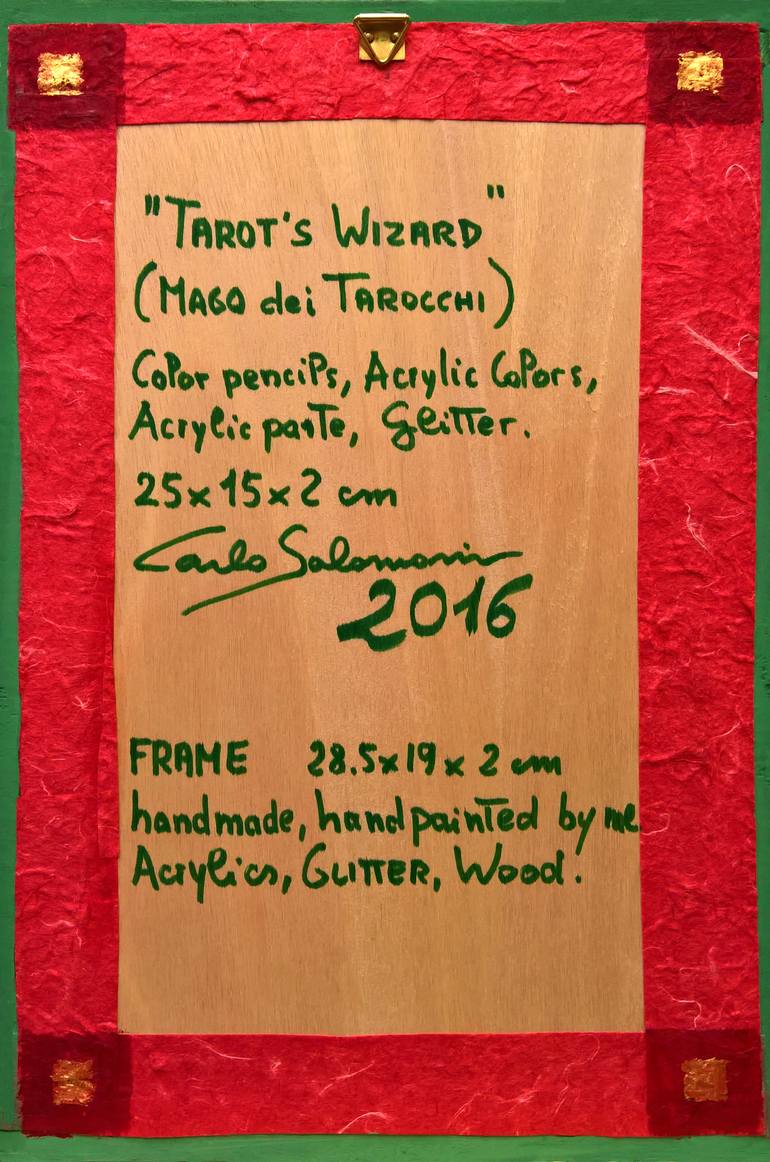 "TAROT'S WIZARD"
(MAGO dei TAROCCHI)
Color pencils, Acrylic Colors,
Acrylic paste, Glitter.
25x15x2 cm
Carlo Salomoni
2016
FRAME 28.5x19x2 cm
handmade, handpainted by me
Acrylics, GLITTER, Wood.